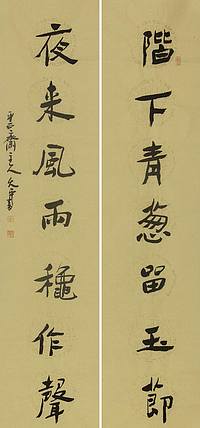 階下青葱留玉節
夜来風雨穐作聲
齋主人